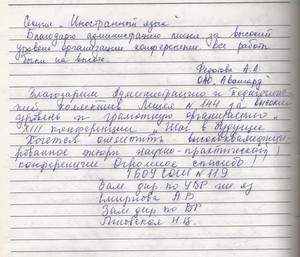 Секция „Иностранный язык"
Благодарю администрацию лицея за высокий
уровень организации конференции. Все работы
были на высоте.
Федотова А.А.
ОАО „Авангард"
Благодарим администрацию и педагогиче-
ский коллектив Лицея № 144 за высокий
уровень и грамотную организацию
XIII конференции „Шаг в будущее
Хочется отметить высококвалифици-
рованное жюри научно-практической
конференции Огромное спасибо!
ГБОУ СОШ № 119
Зам. дир по УВР
Смирнова
Зам дир по ВР